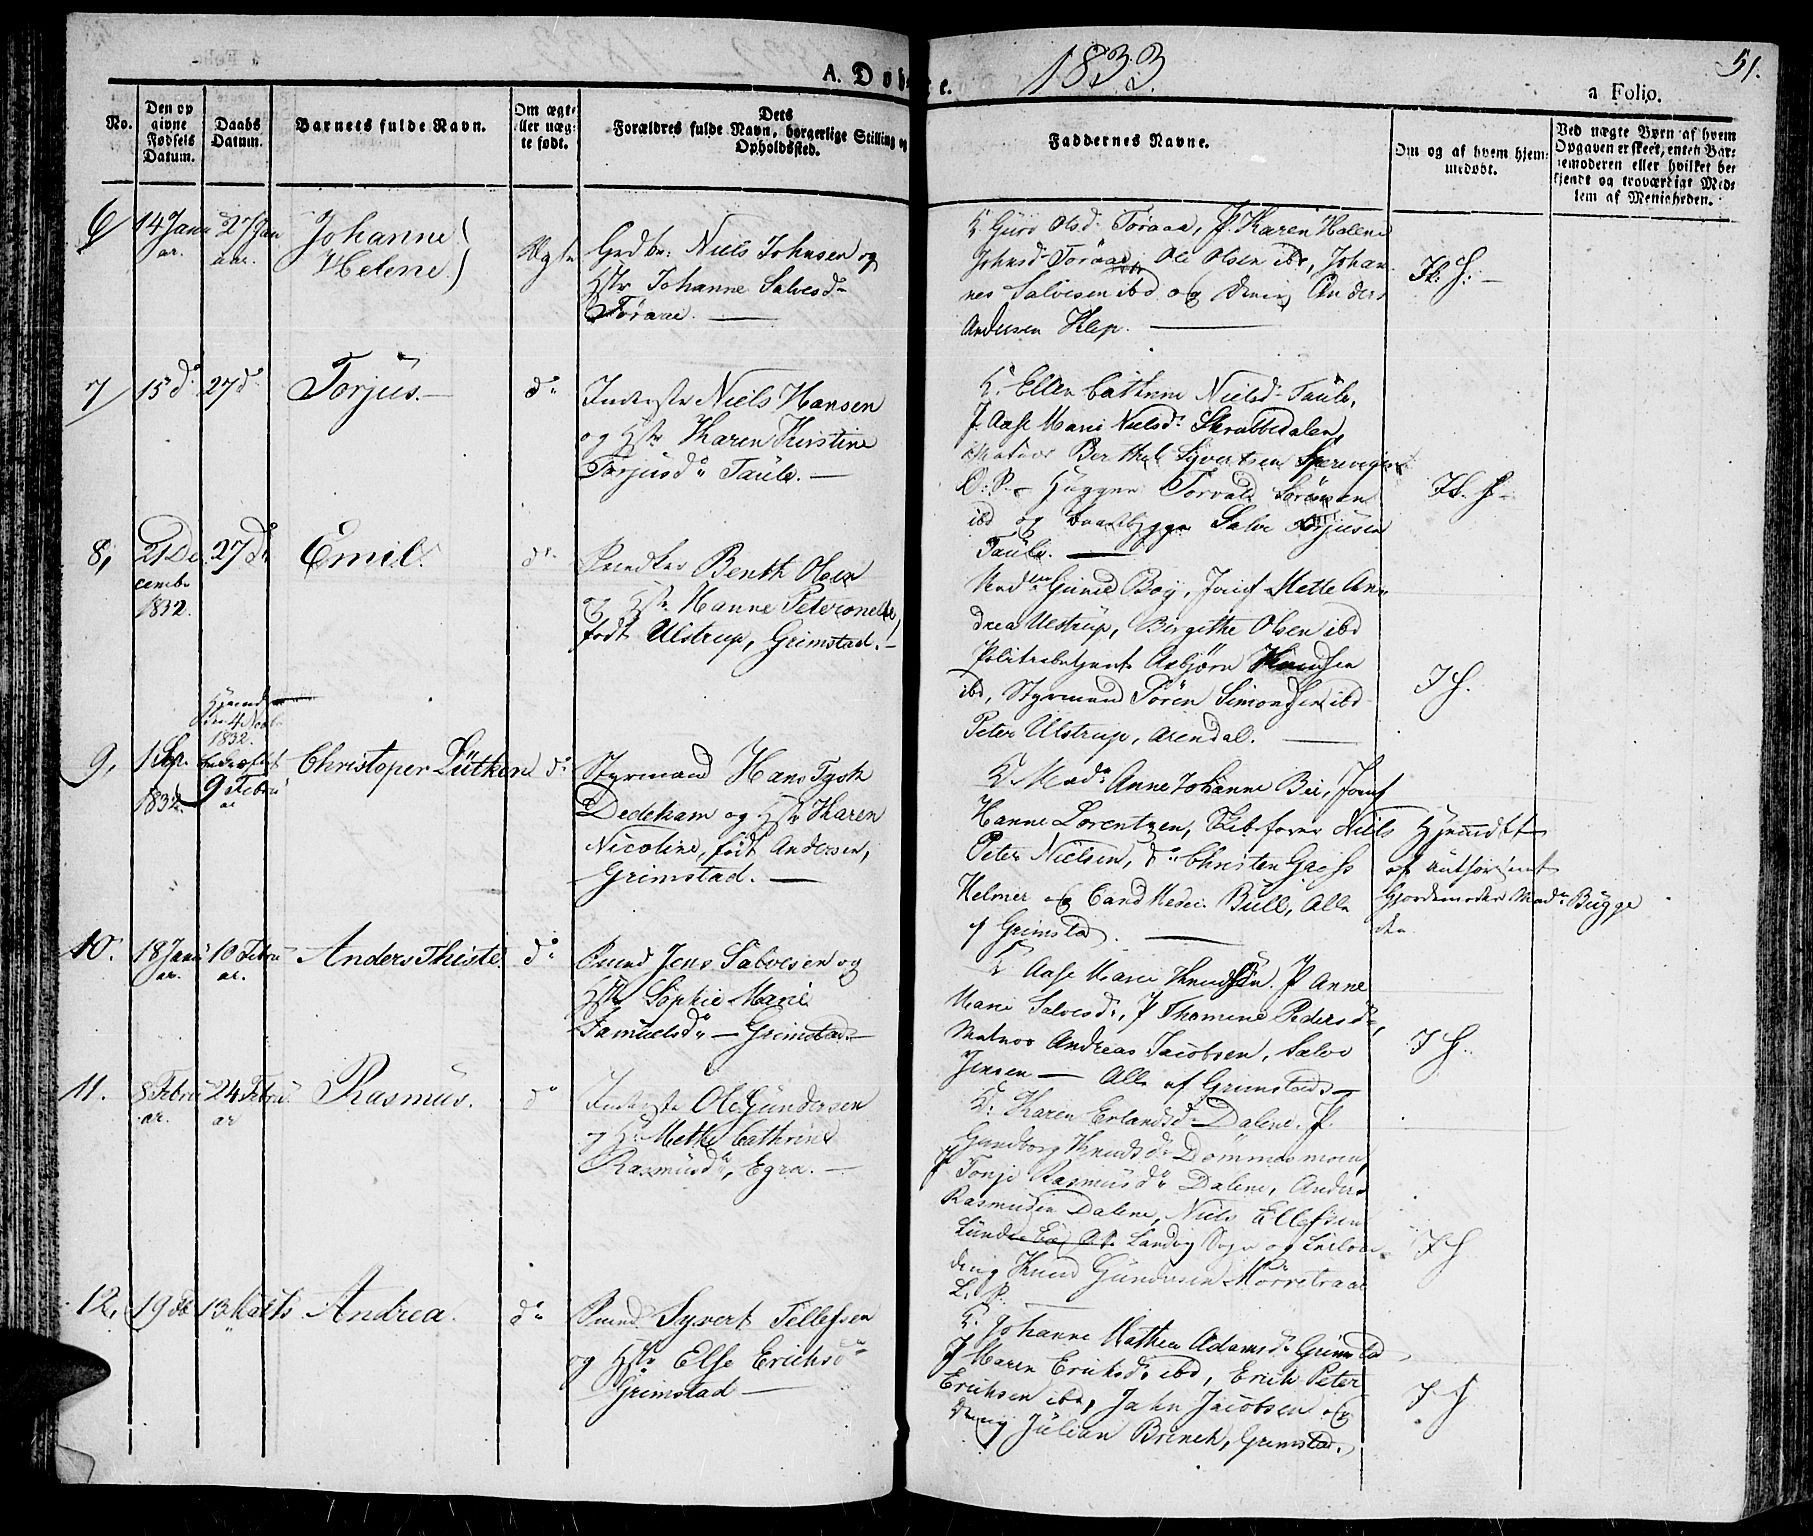 A. Døb
e.
1833.
51.
a Folio.
No.
Den op
givne
Fødsels
Datum.
Daabs
Datum.
Barnets fulde Navn.
Om ægte
eller uæg-
te født.
Dets
Forældres fulde Navn, borgerlige Stilling og
Opholdssted.
Faddernes Navne.
Om og af hvem hjem-
medøbt.
Ved uægte Børn af hvem
Opgaven er skeet, enten Bar-
nemoderen eller hvilket be-
kjendt og troværdigt Med-
lem af Menigheden.
6
14 Janu
ar.
27 Jan
uar.
Johanne
Helene
Ægte
Grdbr: Niels Johnsen og
Hstr Johanne Salvesd-
Töraae.
K. Guro Olsd. Toraaa, P. Karen Helene
Johnsd. Töraae, Ole Olsen ibd, Johan
nes Salvesen ibd og Dreng Anders
Andersen Klep.
7
15 do
27 do
Torjus.
do
Inderste Niels Hansen
og Hstr Karen Kirstine
Torjusdr Taule.
K. Ellen Cathrine Nielsd. Taule,
P. Aase Marie Nielsdr Skrubbedalen,
Matros Berthel Syvertsen
O: P. Torvald Sörensen
ibd og Salve Torjusen
Taule.
8,
21 De
cembr
1832.
27 do
Emil.
do
Benth Olsen
og Hstr Hanne Peteronelle,
født Ulstrup, Grimstad.
Gunild Boy, Jomf Mette An
drea Ulstrup, Birgithe Olsen ibd
Politiebetjent Asbjørn Knudsen
ibd, Styrmand Sören Simonsen ibd
Peter Ulstrup, Arendal.
J H.
9,
1 Sep.
1832
Hjemd
den 4 Novb
1832.
9 Febru
ar
Christoper Lütken
do
Styrmand Hans Tysk
Dedekam og Hstr Karen
Nicoline, født Andersen,
Grimstad.
K Mad. Anne Johanne Bie, Jomf
Hanne Lorentzen, Skibsfører Niels
Peter Nielsen, do Christen Giess
Helmer og Cand Medic. Bull, Alle
af Grimstad.
Hjemdöbt
af authoriseret
Gjordemoder Madm Bugge
10.
18 Janu
ar.
10 Febru
ar.
Anders Thiste
do
Jens Salvesen og
Hstr Sophie Marie
Samuelsdr - Grimstad.
K Aase Marie Knudsen. P Anne
Marie Salvesdr, P Thomine Pedersdr,
Matros Andreas Jacobsen, Salve
Jensen - Alle af Grimstad.
J H.
11.
8 Febru
ar.
24 Febru
ar
Rasmus.
do
Inderste Ole Gundersen
og H. Mette Cathrine
Rasmusdr, Egra.
K. Karen Erlandsd. Dalene. P.
Gundborg Knudsdr Dömmesmoen,
P Tonje Rasmusdr Dalene, Anders
Rasmusen Dalene, Niels Ellefsen
Landvig Sogn og
dreng Knud Gundersen Morretraae
L. P.
J H
12,
19 do
13 Marts
Andrea.
do
Syvert Tellefsen
og Hstr Else Eriksdr
Grimstad
K. Johanne Kathrn Adamsdr Grimstad
P Maren Eriksdr ibd, Erich Peter
Erichsen ibd, Jahn Jacobsen og
Dreng Julian Brinch, Grimstad.
J H